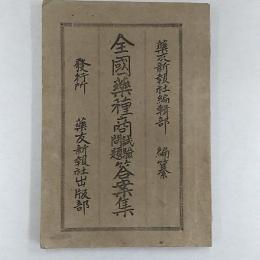 藥友新報社編輯部 編纂
全國藥種商試驗問題答案集
發行所 藥友新報社出版部